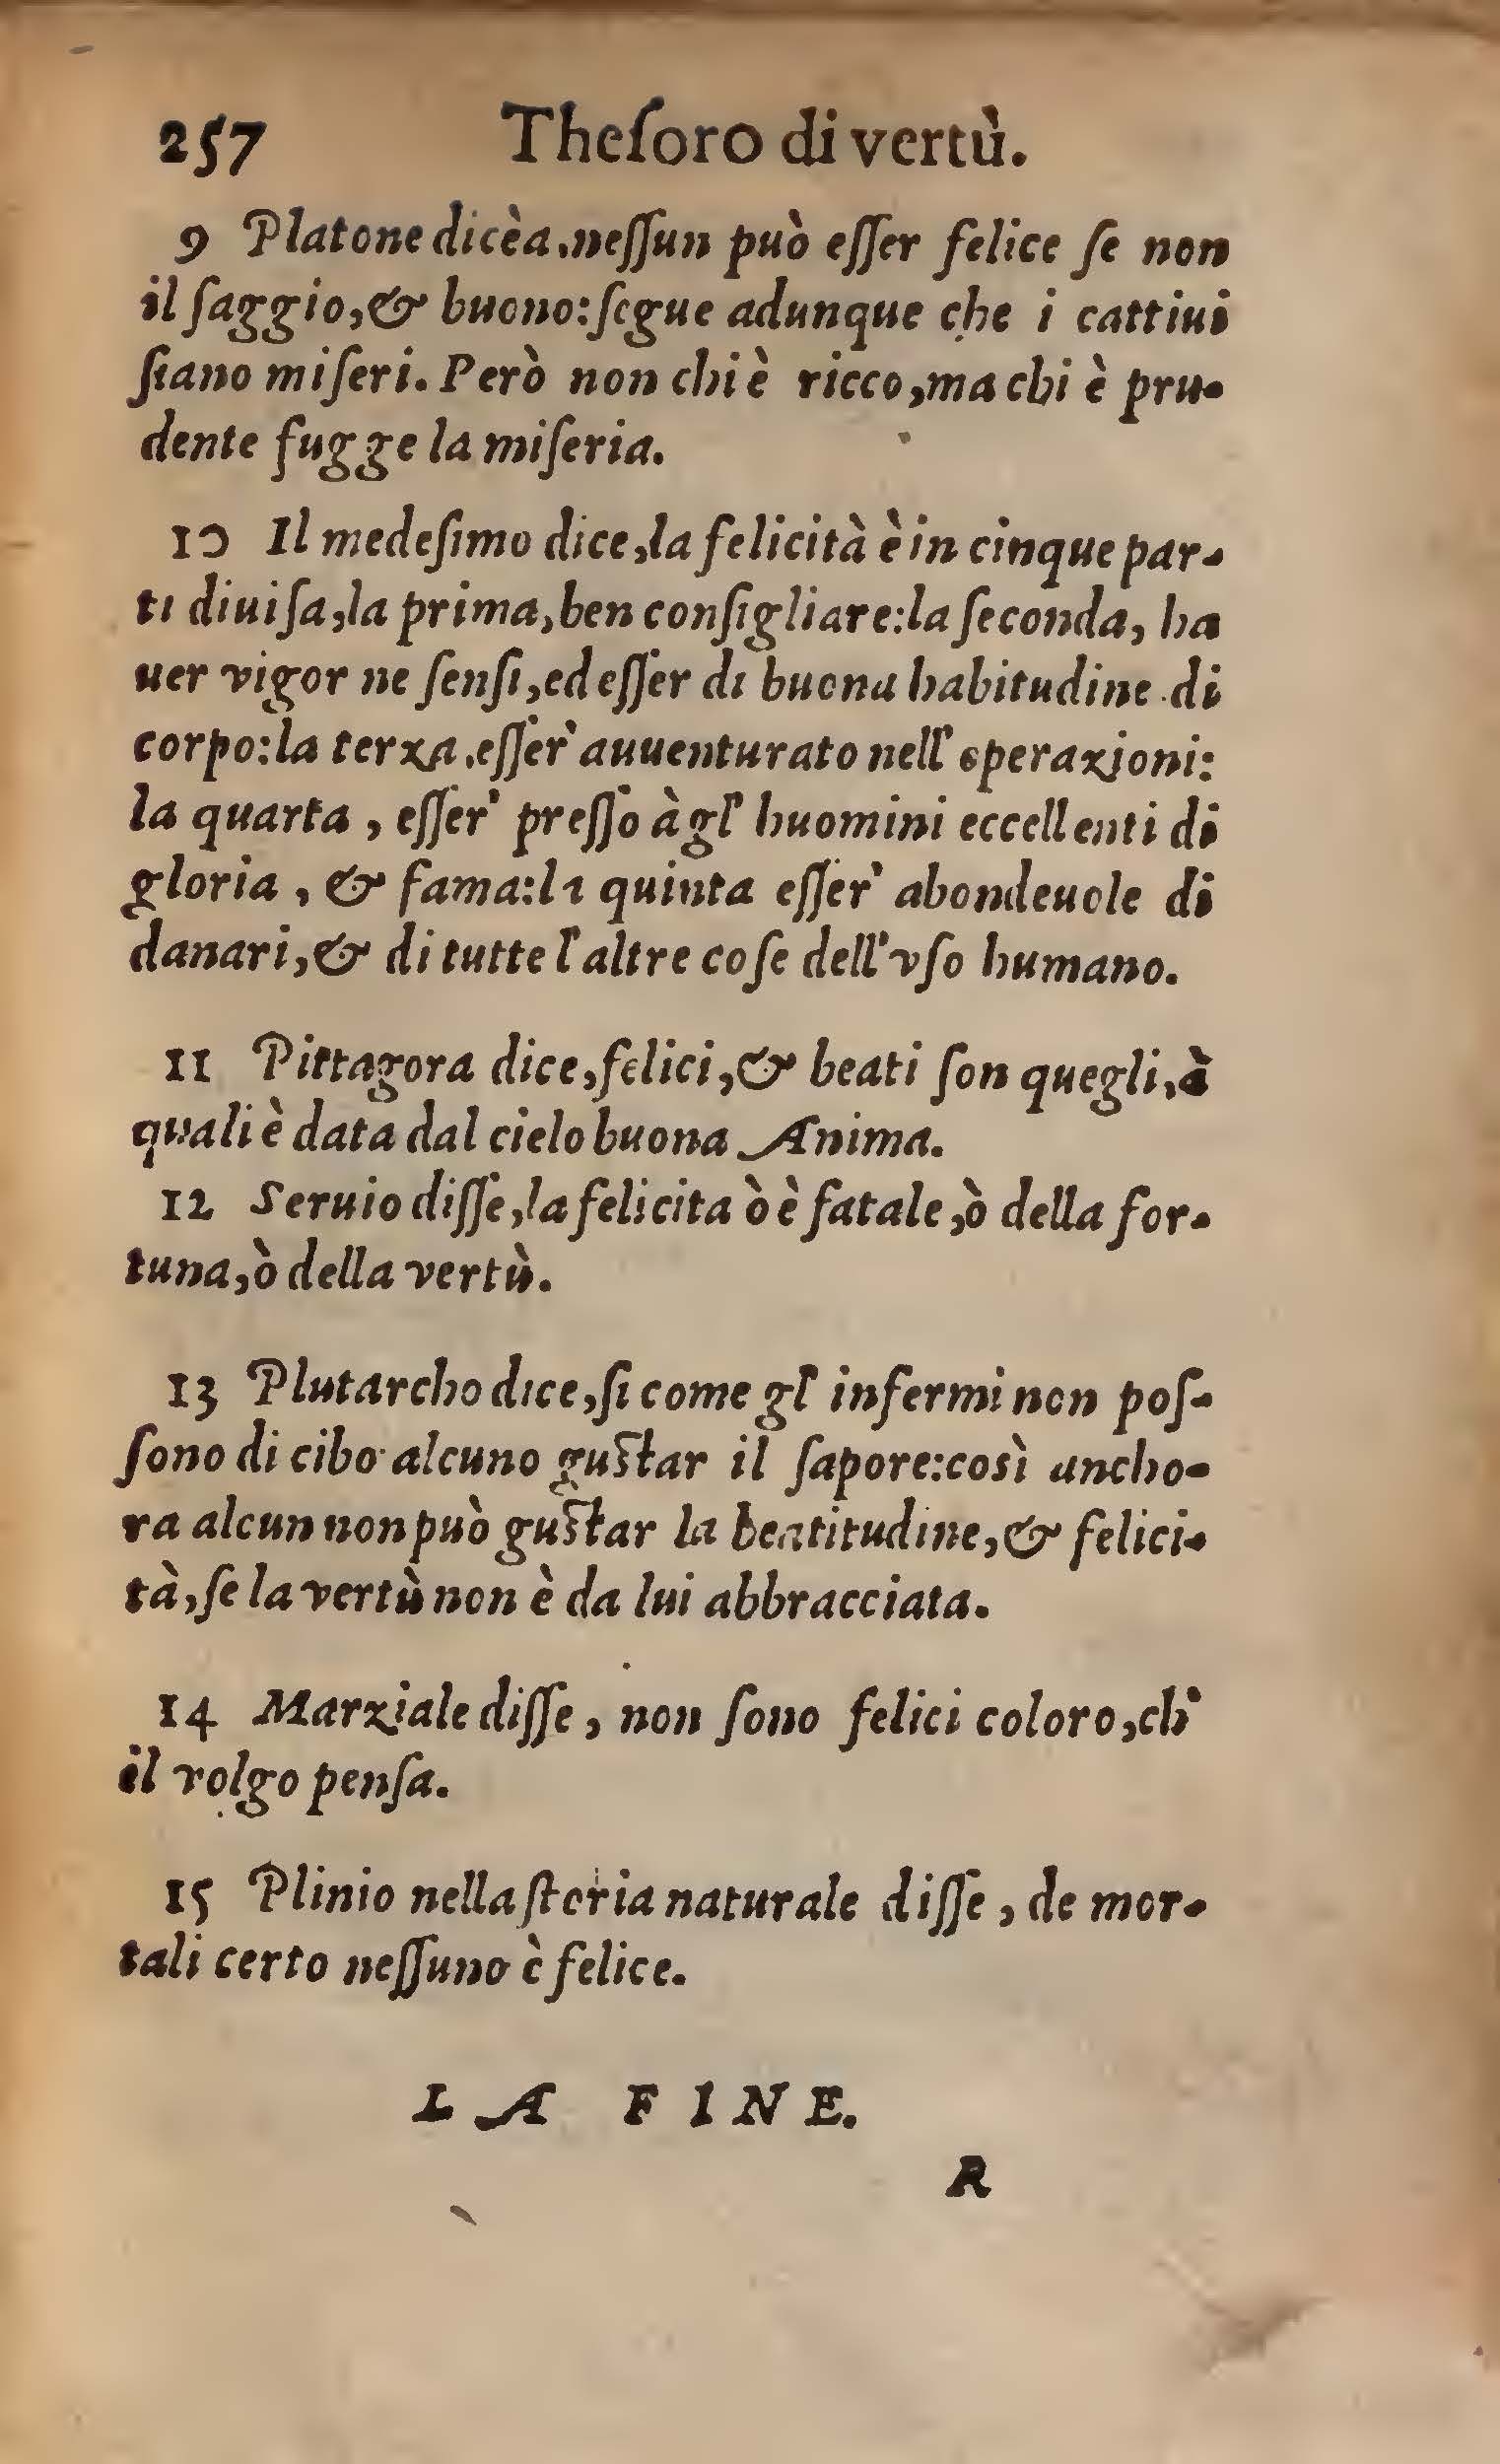 257 Theſoro di vertù.
9 Platone dicèa, neſſun può eſſer felice ſe non
il ſaggio, & buono: ſegue adunque che i cattiui
ſiano miſeri. Però non chi è ricco, ma chi è pru-
dente fugge la miſeria.
10 Il medeſimo dice, la felicità è in cinque par-
ti diuiſa, la prima, ben conſigliare: la ſeconda, ha
uer vigor ne ſenſi, ed eſſer di buona habitudine di
corpo: la terza, eſſer' auuenturato nell' operazioni:
la quarta, eſſer' preſſo à gl' huomini eccellenti di
gloria, & fama: la quinta eſſer' abondeuole di
danari, & di tutte l'altre coſe dell'vſo humano.
11 Pittagora dice, felici, & beati ſon quegli, à
quali è data dal cielo buona Anima.
12 Seruio diſſe, la felicita ò è fatale, ò della for-
tuna, ò della vertù.
13 Plutarcho dice, ſi come gl' infermi non poſ-
ſono di cibo alcuno guſtar il ſapore: così ancho-
ra alcun non può guſtar la beatitudine, & felici-
tà, ſe la vertù non è da lui abbracciata.
14 Marziale diſſe, non ſono felici coloro, ch'
il volgo penſa.
15 Plinio nella ſtoria naturale diſſe, de mor-
tali certo neſſuno è felice.
LA FINE.
R